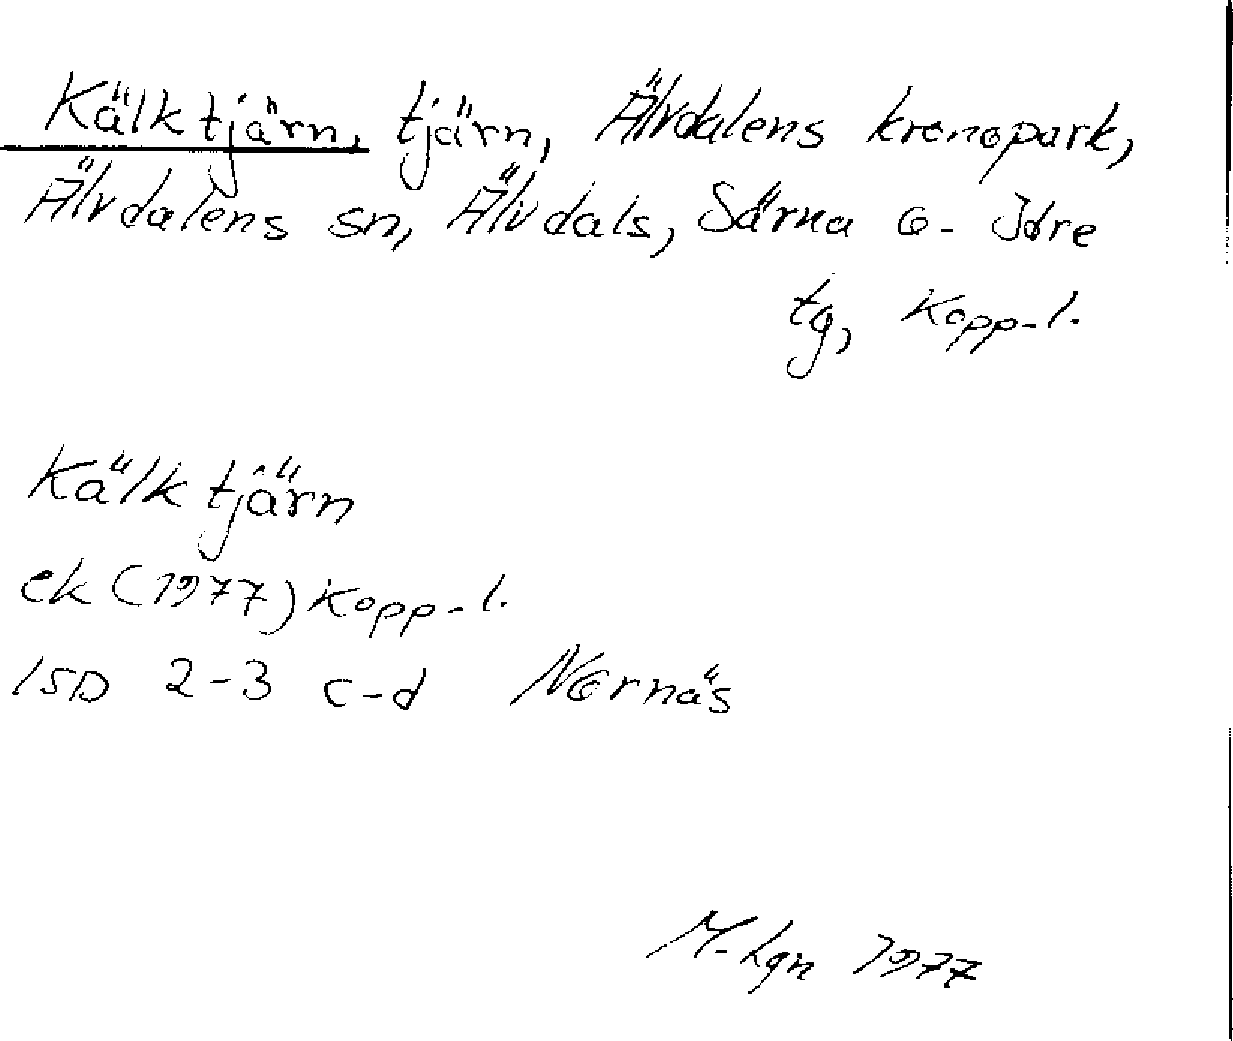 Kälktjärn, tjärn, Älvdalens kronopark,
Älvdalens sn, Älvdals, Särna o. Idre
tg, Kopp-l.
Kälktjärn
ek (1977) Kopp-l.
15D 2-3 c-d Nornäs
M-Lgn 1977